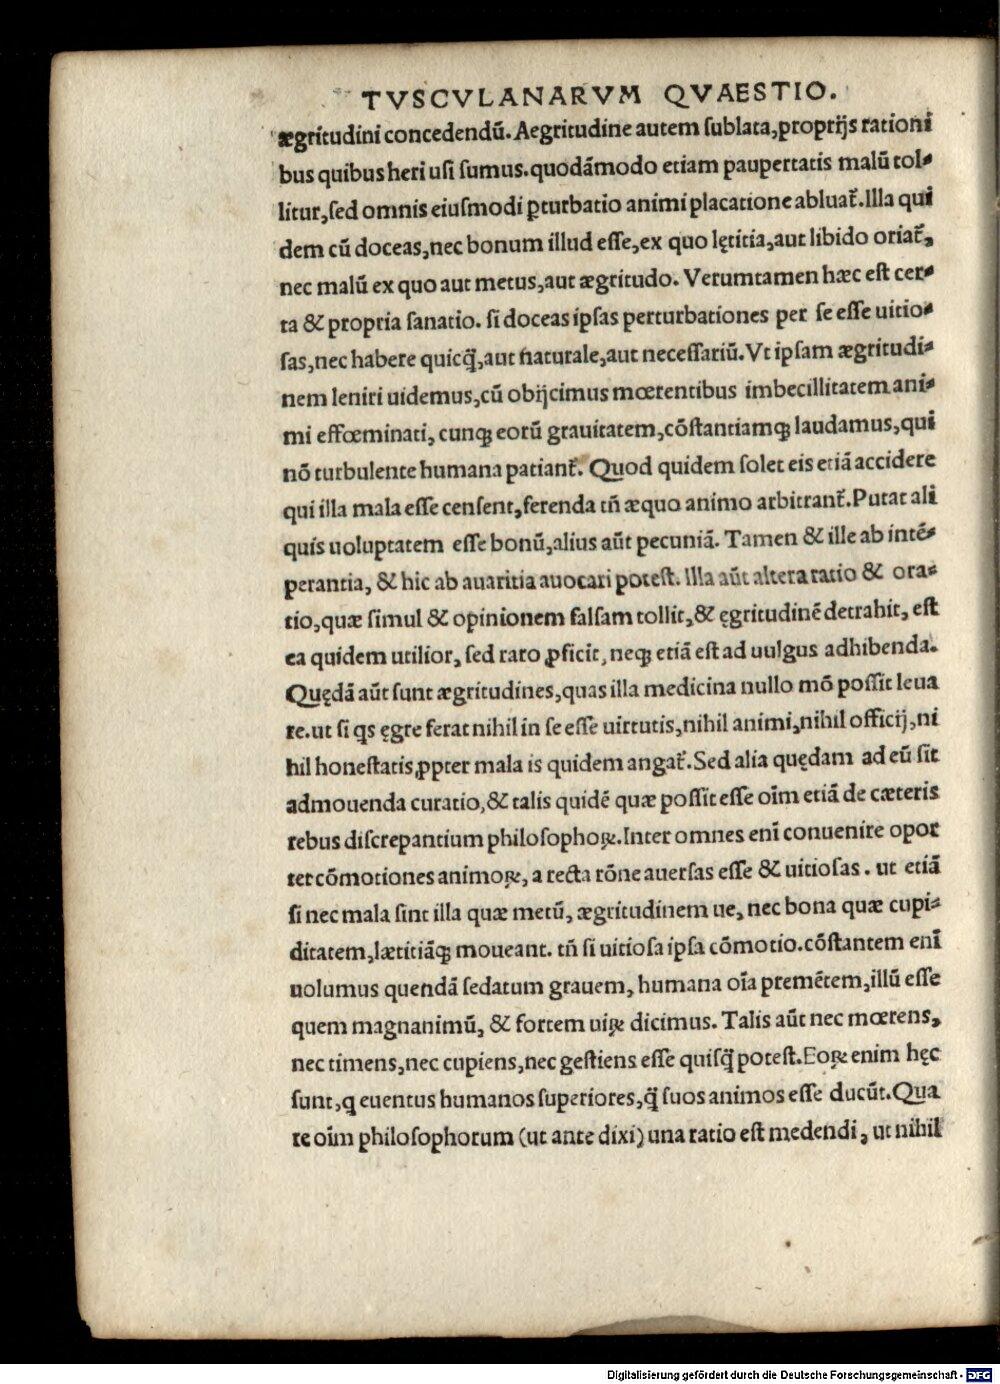 TVSCVLANARVM QVAESTIO.
ægritudini concedendū. Aegritudine autem sublata, proprijs rationi
bus quibus heri usi sumus. quodāmodo etiam paupertatis malū tol-
litur, sed omnis eiusmodi ꝑturbatio animi placatione abluat᷑. Illa qui
dem cū doceas, nec bonum illud esse, ex quo lętitia, aut libido oriat᷑,
nec malū ex quo aut metus, aut ægritudo. Verumtamen hæc est cer-
ta & propria sanatio. si doceas ipsas perturbationes per se esse uitio-
sas, nec habere quicq̄, aut naturale, aut necessariū. Vt ipsam ægritudi-
nem leniri uidemus, cū obijcimus mœrentibus imbecillitatem ani-
mi effœminati, cunqꝫ eorū grauitatem, cōstantiamqꝫ laudamus, qui
nō turbulente humana patiant᷑. Quod quidem solet eis etiā accidere
qui illa mala esse censent, ferenda tñ æquo animo arbitrant᷑. Putat ali
quis uoluptatem esse bonū, alius aūt pecuniā. Tamen & ille ab intē-
perantia, & hic ab auaritia auocari potest. Illa aūt altera ratio & ora-
tio, quæ simul & opinionem falsam tollit, & ęgritudinē detrahit, est
ea quidem utilior, sed raro ꝓficit, neqꝫ etiā est ad uulgus adhibenda.
Quędā aūt sunt ægritudines, quas illa medicina nullo mō possit leua
re. ut si qs ęgre ferat nihil in se esse uirtutis, nihil animi, nihil officij, ni
hil honestatis, ꝓpter mala is quidem angat᷑. Sed alia quędam ad eū sit
admouenda curatio, & talis quidē quæ possit esse oīm etiā de cæteris
rebus discrepantium philosophoꝝ. Inter omnes enī conuenire opor
tet cōmotiones animoꝝ, a recta rōne auersas esse & uitiosas. ut etiā
si nec mala sint illa quæ metū, ægritudinem ue, nec bona quæ cupi-
ditatem, lætitiāqꝫ moueant. tñ si uitiosa ipsa cōmotio. cōstantem enī
uolumus quendā sedatum grauem, humana oīa premētem, illū esse
quem magnanimū, & fortem uiꝝ dicimus. Talis aūt nec mœrens,
nec timens, nec cupiens, nec gestiens esse quisq̄ potest. Eoꝝ enim hęc
sunt, q euentus humanos superiores, q̄ suos animos esse ducūt. Qua
re oīm philosophorum (ut ante dixi) una ratio est medendi, ut nihil
Digitalisierung gefördert durch die Deutsche Forschungsgemeinschaft - DFG